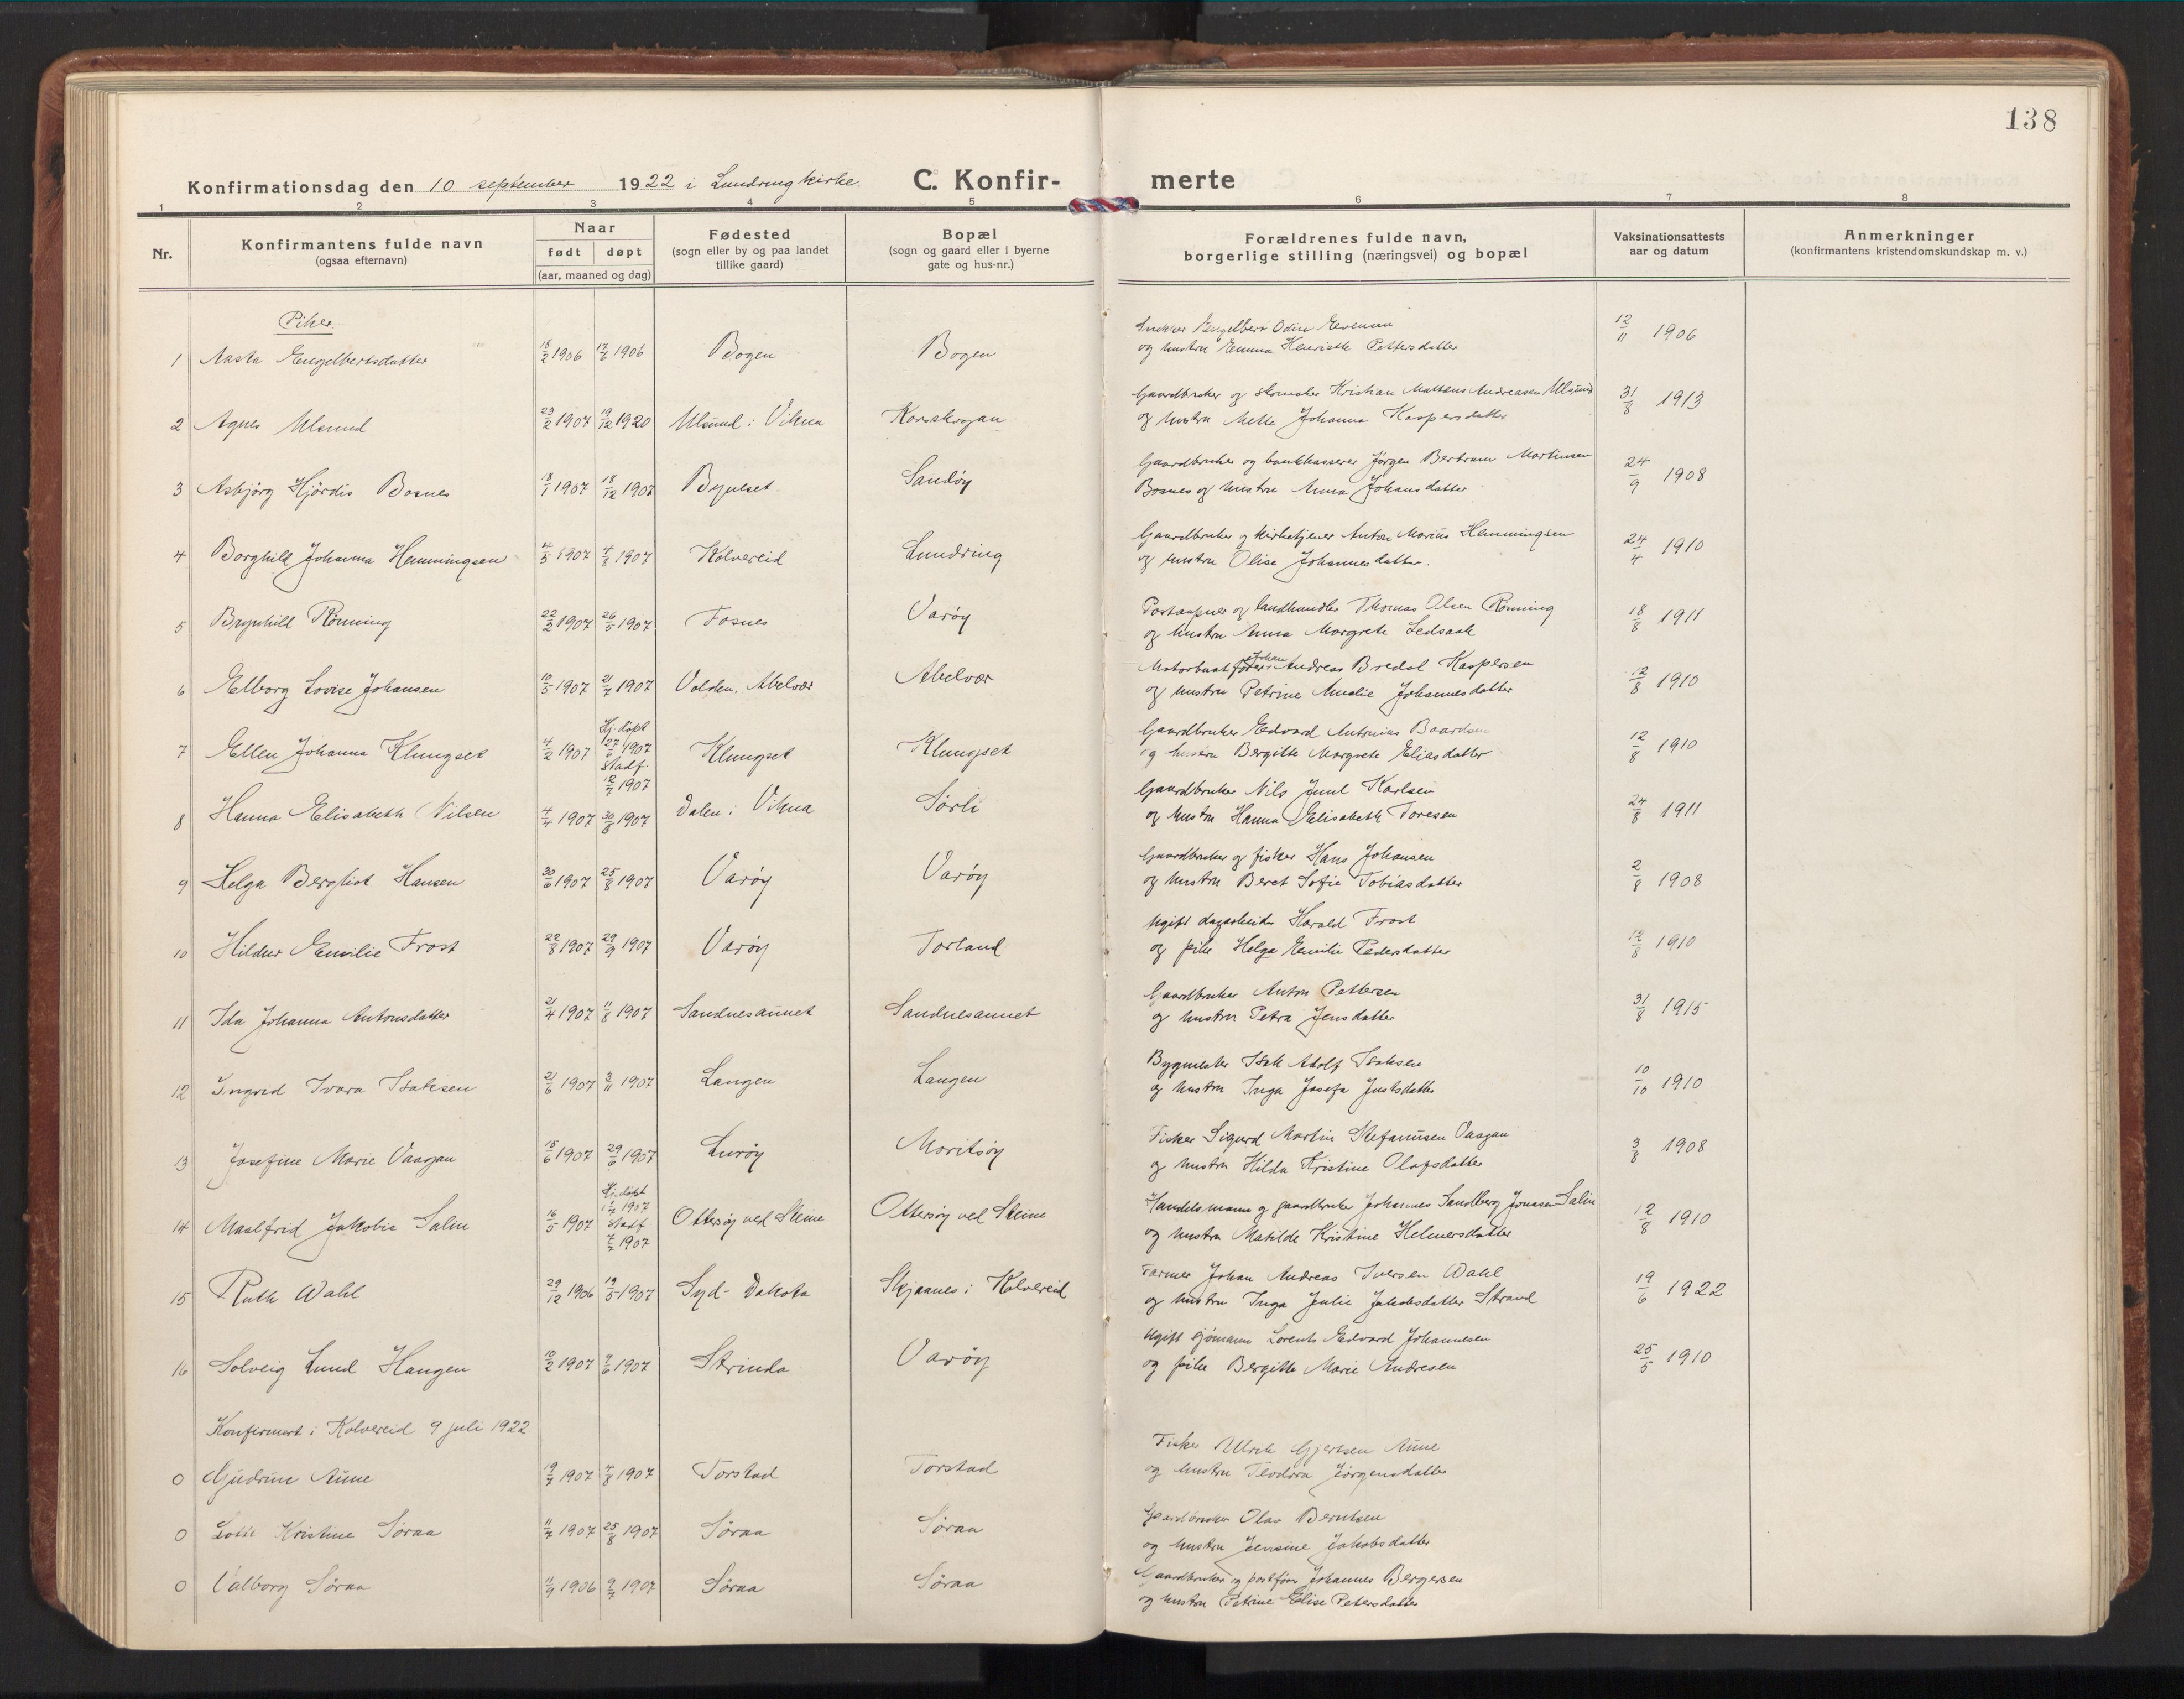 138
Konfirmationsdag den 10 september 1922 i Lundring kirke. C. Konfir- merte
1 2 3 4 5 6 7 8
Nr. Konfirmantens fulde navn (ogsaa efternavn) Naar født døpt (aar, maaned og dag) Fødested (sogn eller by og paa landet tillike gaard) Bopæl (sogn og gaard eller i byerne gate og hus-nr.) Forældrenes fulde navn, borgerlige stilling (næringsvei) og bopæl Vaksinationsattests aar og datum Anmerkninger (konfirmantens kristendomskundskap m. v.)
Piker
1 Aasta Engelbertsdatter 18/2 1906 17/6 1906 Bogen Bogen Engelbert Odin Evensen
og hustru Emma Henriette Pettersdatter 12/11 1906
2 Agnes Ulsund 23/2 1907 19/12 1920 Ulsund i Vikna Korsskogan Gaardbruker og skomaker Kristian Mattæus Andreassen Ulsund
og hustru Mette Johanna Kaspersdatter 31/8 1913
3 Asbjörg Hjördis Bosnes 18/1 1907 18/12 1907 Bynesset Sandöy Gaardbruker og bankkasserer Jørgen Bertram Martinsen
Bosnes og hustru Anna Johansdatter 24/9 1908
4 Borghild Johanna Henningsen 4/5 1907 4/8 1907 Kolvereid Lundring Gaardbruker og kirketjener Anton Marius Henningsen
og hustru Olise Johannesdatter. 24/4 1910
5 Brynhild Rönning 22/2 1907 26/5 1907 Fosnes Varöy Postaapner og landhandler Thomas Olsen Rönning
og hustru Anna Margrete Ledsaak 18/8 1911
6 Elborg Lovise Johansen 10/5 1907 21/7 1907 Volden, Abelvær Abelvær Motorbaatfører Johan Andreas Bredal Kaspersen
og hustru Petrine Amalie Johannesdatter 12/8 1910
7 Ellen Johanna Klungset 4/2 1907 Hj. døpt 27/6 1907 Stadf. 12/7 1907 Klungset Klungset Gaardbruker Edvard Antonius Baardsen
og hustru Bergitte Margrete Eliasdatter 12/8 1910
8 Hanna Elisabeth Nilsen 4/4 1907 30/8 1907 Dalen i Vikna Sörli Gaardbruker Nils Juul Karlsen
og hustru Hanna Elisabeth Toresen 24/8 1911
9 Helga Bergliot Hansen 30/6 1907 25/8 1907 Varöy Varöy Gaardbruker og fisker Hans Johansen
og hustru Beret Sofie Tobiasdatter 2/8 1908
10 Hildur Emilie Frost 22/8 1907 29/9 1907 Varöy Torland Ugift dagarbeider Harald Frost
og pike Helga Emilie Pedersdatter 12/8 1910
11 Ida Johanna Antonsdatter 21/4 1907 11/8 1907 Sandnesaunet Sandnesaunet Gaardbruker Anton Pettersen
og hustru Petra Jensdatter 31/8 1915
12 Ingrid Ivara Isaksen 21/6 1907 3/11 1907 Langen Langen Bygmester Isak Adolf Isaksen
og hustru Inga Josefa Justsdatter 10/10 1910
13 Josefine Marie Vaagan 15/6 1907 29/6 1907 Luröy Moritsöy Fisker Sigurd Martin Stefanusen Vaagan
og hustru Hilda Kristine Olafsdatter 3/8 1908
14 Maalfrid Jakobie Salin 16/5 1907 Hj. døpt 1/7 1907 Stadf. 7/7 1907 Ottersöy ved Steine Ottersöy ved Steine Handelsmann og gaardbruker Johannes Sandberg Jonassen Salin
og hustru Matilde Kristine Helmersdatter 12/8 1910
15 Ruth Wahl 29/12 1906 19/5 1907 Syd-Dakota Skjaanes i Kolvereid Farmer Johan Andreas Iversen Wahl
og hustru Inga Julie Jakobsdatter Strand 19/6 1922
16 Solveig Lund Hangen 10/2 1907 9/6 1907 Strinda Varöy Ugift sjömann Lorents Edvard Johannesen
og pike Bergitte Marie Andresen 25/5 1910
Konfirmert i Kolvereid 9 juli 1922
0 Gudrun Aune 19/7 1907 4/8 1907 Torstad Torstad Fisker Ulrik Gjertsen Aune
og hustru Teodora Jörgensdatter
0 Lotte Kristine Söraa 11/7 1907 25/8 1907 Söraa Söraa Gaardbruker Olav Berntsen
og hustru Jensine Jakobsdatter
0 Valborg Söraa 11/9 1906 9/7 1907 Söraa Söraa Gaardbruker og postfører Johannes Bergersen
og hustru Petrine Elise Petersdatter